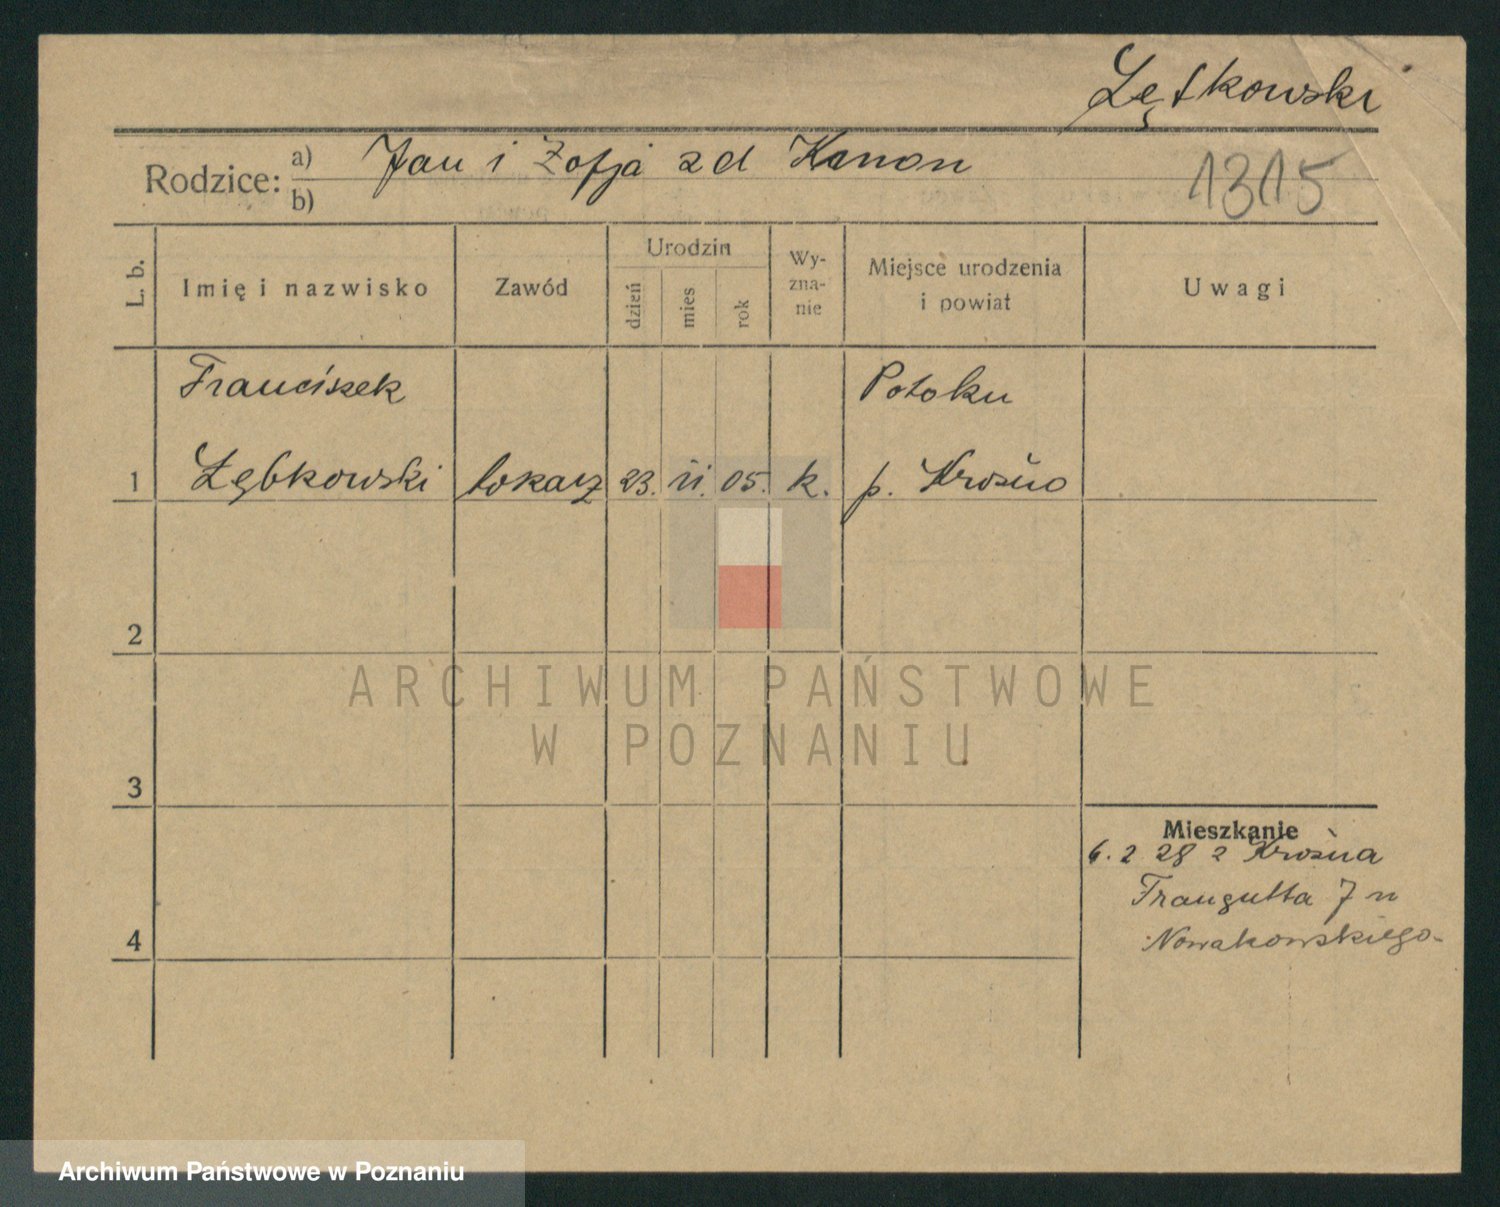 Łętkowski
Rodzice: a) Jan i Zofja zd Kanon
b)
1315
L. b. Imię i nazwisko Zawód Urodzin dzień mies rok Wy-zna-nie Miejsce urodzenia i powiat Uwagi
Franciszek Potoku
1 Łębkowski tokarz 23. II. 05. k. p. Krosno
2
ARCHIWUM PAŃSTWOWE
W POZNANIU
3
Mieszkanie
6. 2 28 z Krosna
Traugutta 7 n
Nowakowskiego
4
Archiwum Państwowe w Poznaniu